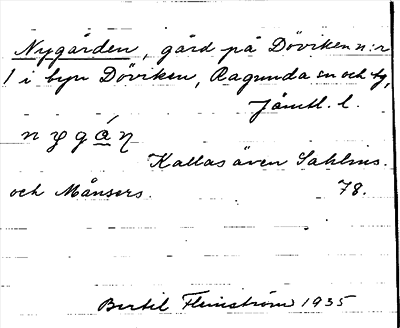 Nygården, gård på Döviken n:r
1 i byn Döviken, Ragunda sn och tg,
Jämtl. l.
Kallas även Sahlins.
och Månsers. 78.
Bertil Flemström 1935